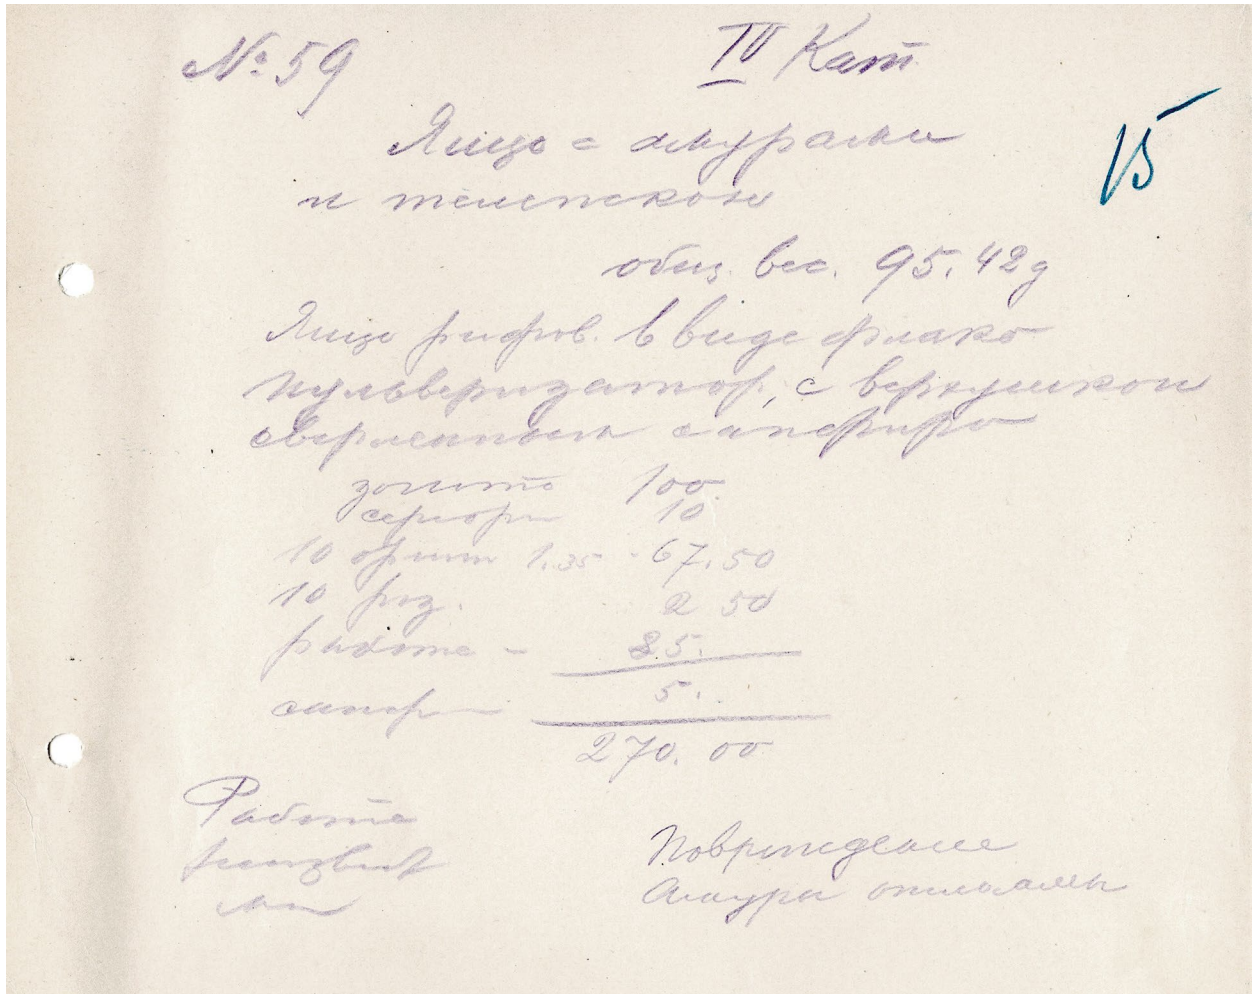 № 59
IV Кат.
15
Яицо с амурами
и телескоп
общ. вес. 95.42 д
Яицо рифов. в виде флако
пульверизатор, с верхушкой
сверленным сапфиро
золото 100.
серебри 10
10 брил 1.35 - 67.50
10 роз. 2 50
работа - 85.
сапфр 5.
270.00
Работа
неизвест
ма
Повреждение
Амуры отломаны